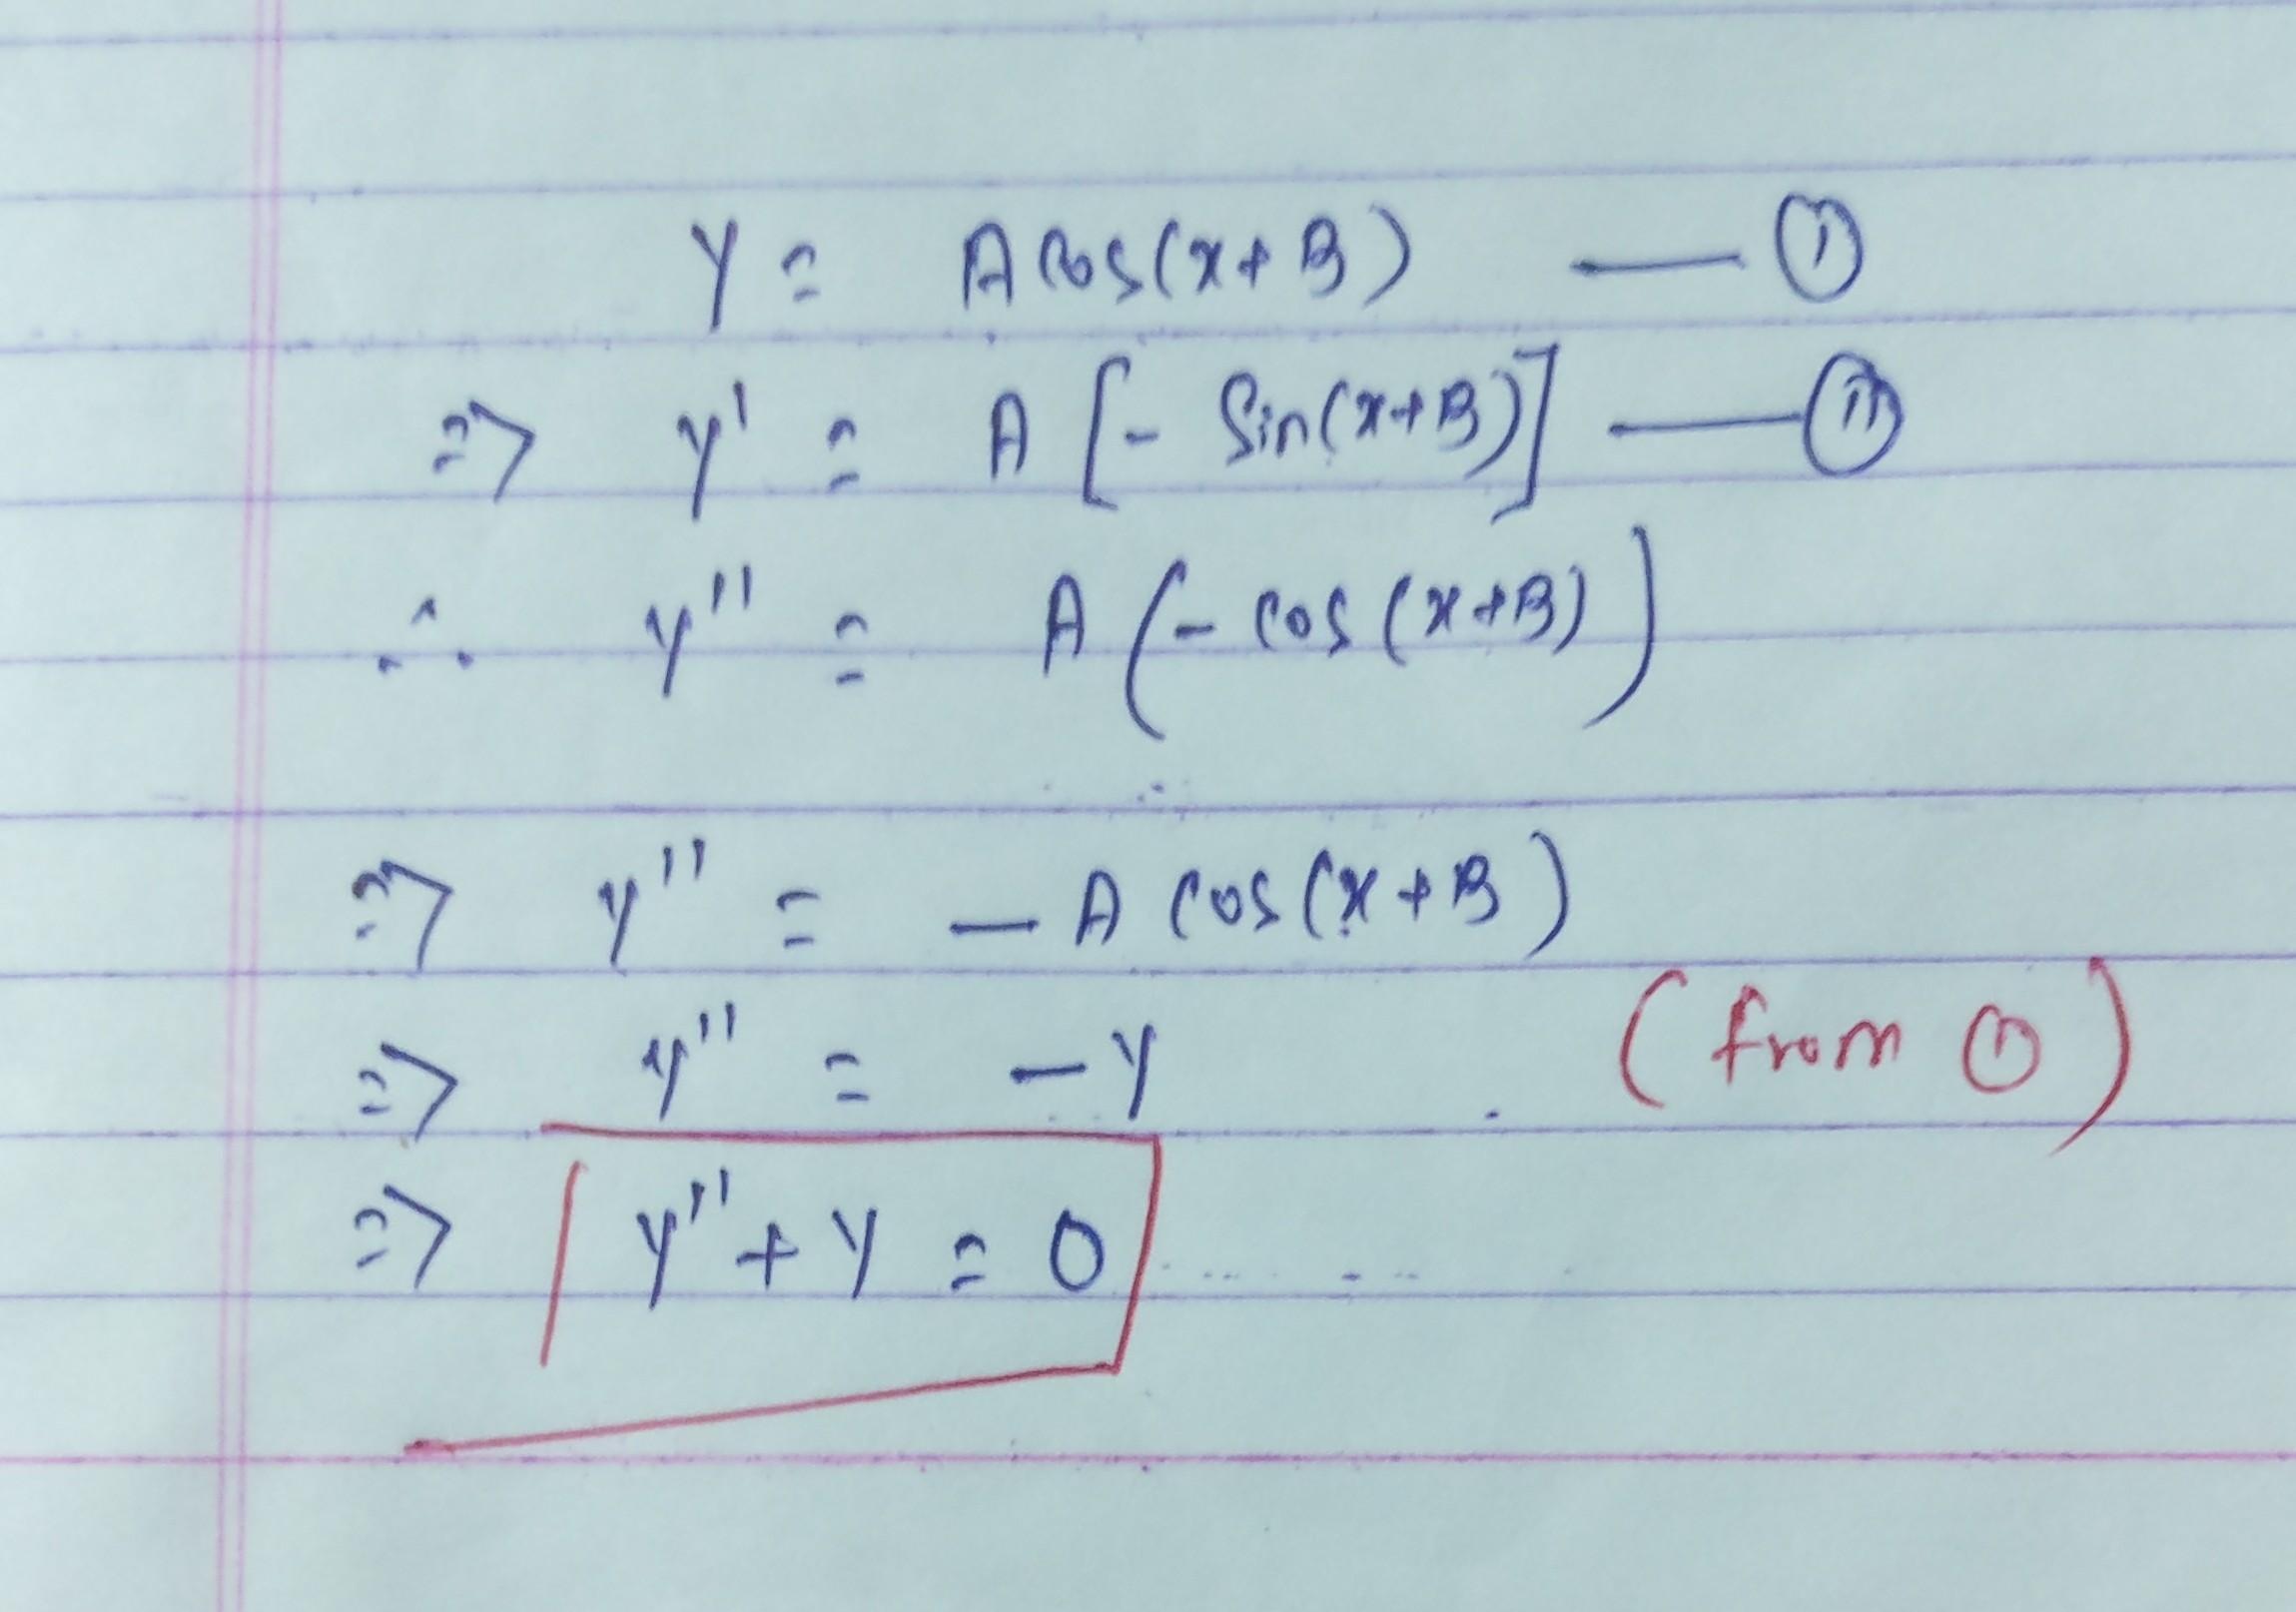 y = A cos(x+B) — ①
⇒ y' = A [- Sin(x+B)] — ⑪
∴ y'' = A (- cos (x+B))
⇒ y'' = - A cos(x+B)
⇒ y'' = -y (from ①)
⇒ y'' + y = 0